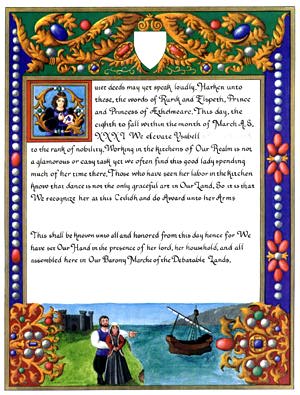 Quiet deeds may yet speak loudly. Harken unto
these, the words of Rurik and Elspeth, Prince
and Princess of Æthelmearc. This day, the
eighth to fall within the month of March A.S.
XXXI We elevate Ysabell
to the rank of nobility. Working in the kitchens of Our Realm is not
a glamorous or easy task yet we often find this good lady spending
much of her time there. Those who have seen her labor in the kitchen
know that dance is not the only graceful art in Our Land. So it is that
We recognize her at this Ceilidh and do Award unto her Arms
This shall be known unto all and honored from this day hence for We
have set Our Hand in the presence of her lord, her household, and all
assembled here in Our Barony Marche of the Debatable Lands.